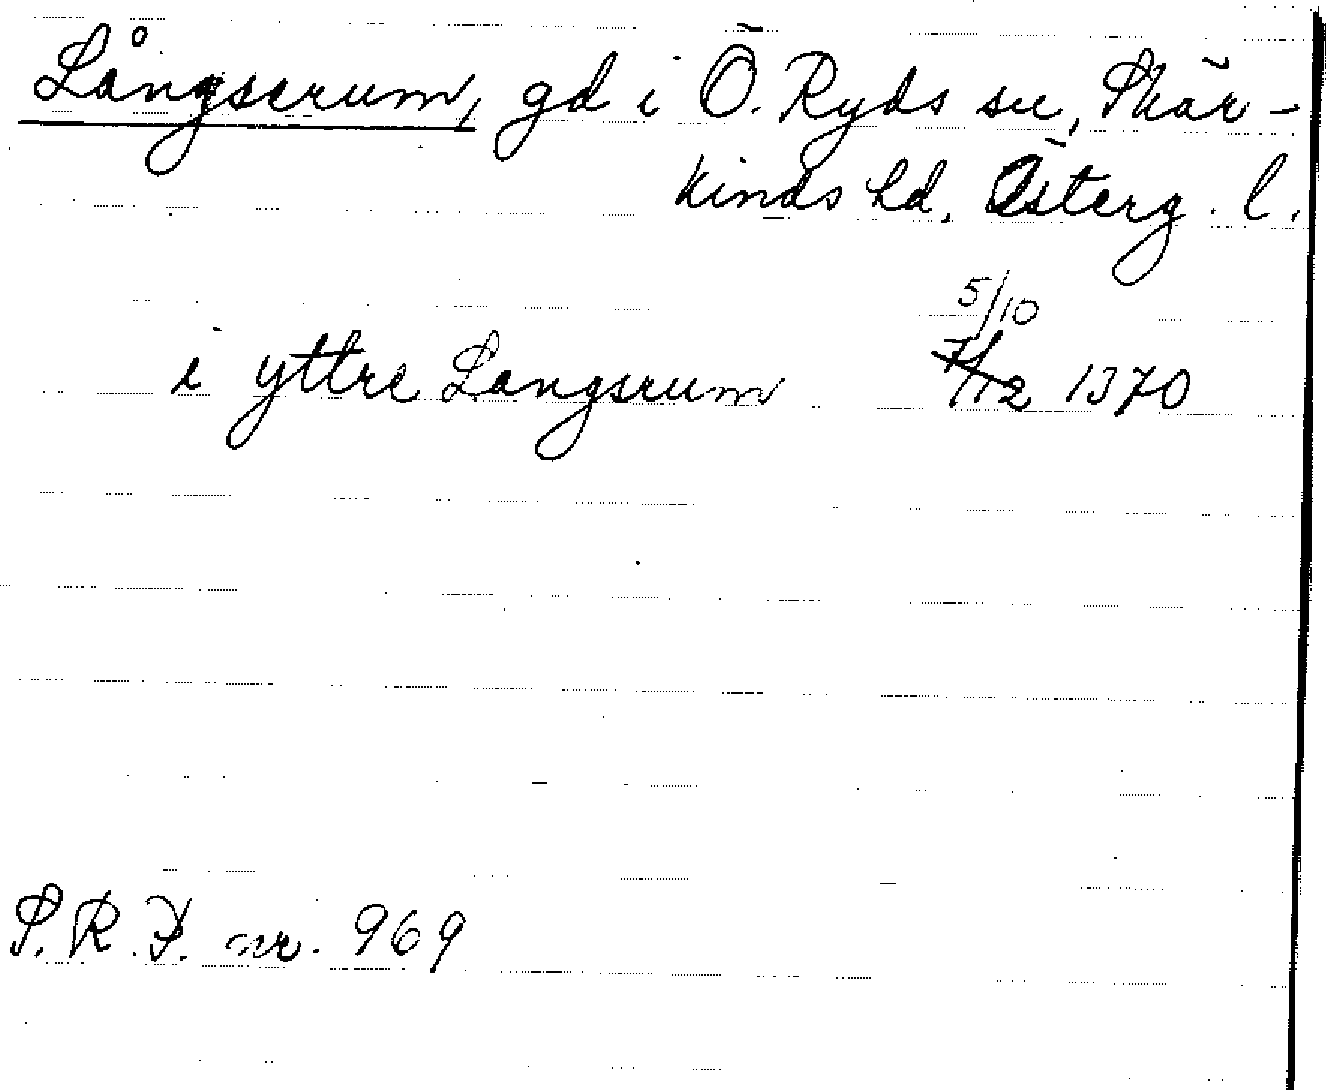 Långserum, gd i Ö. Ryds sn, Skär-
kinds hd, Österg. l.
5/10
i yttre Langsrum 7/12 1370
S.R.P. nr. 969